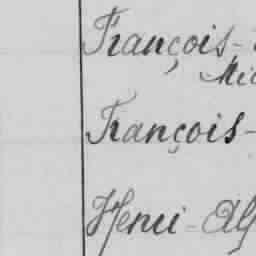 François-
Mic
François-
Henri-Alf